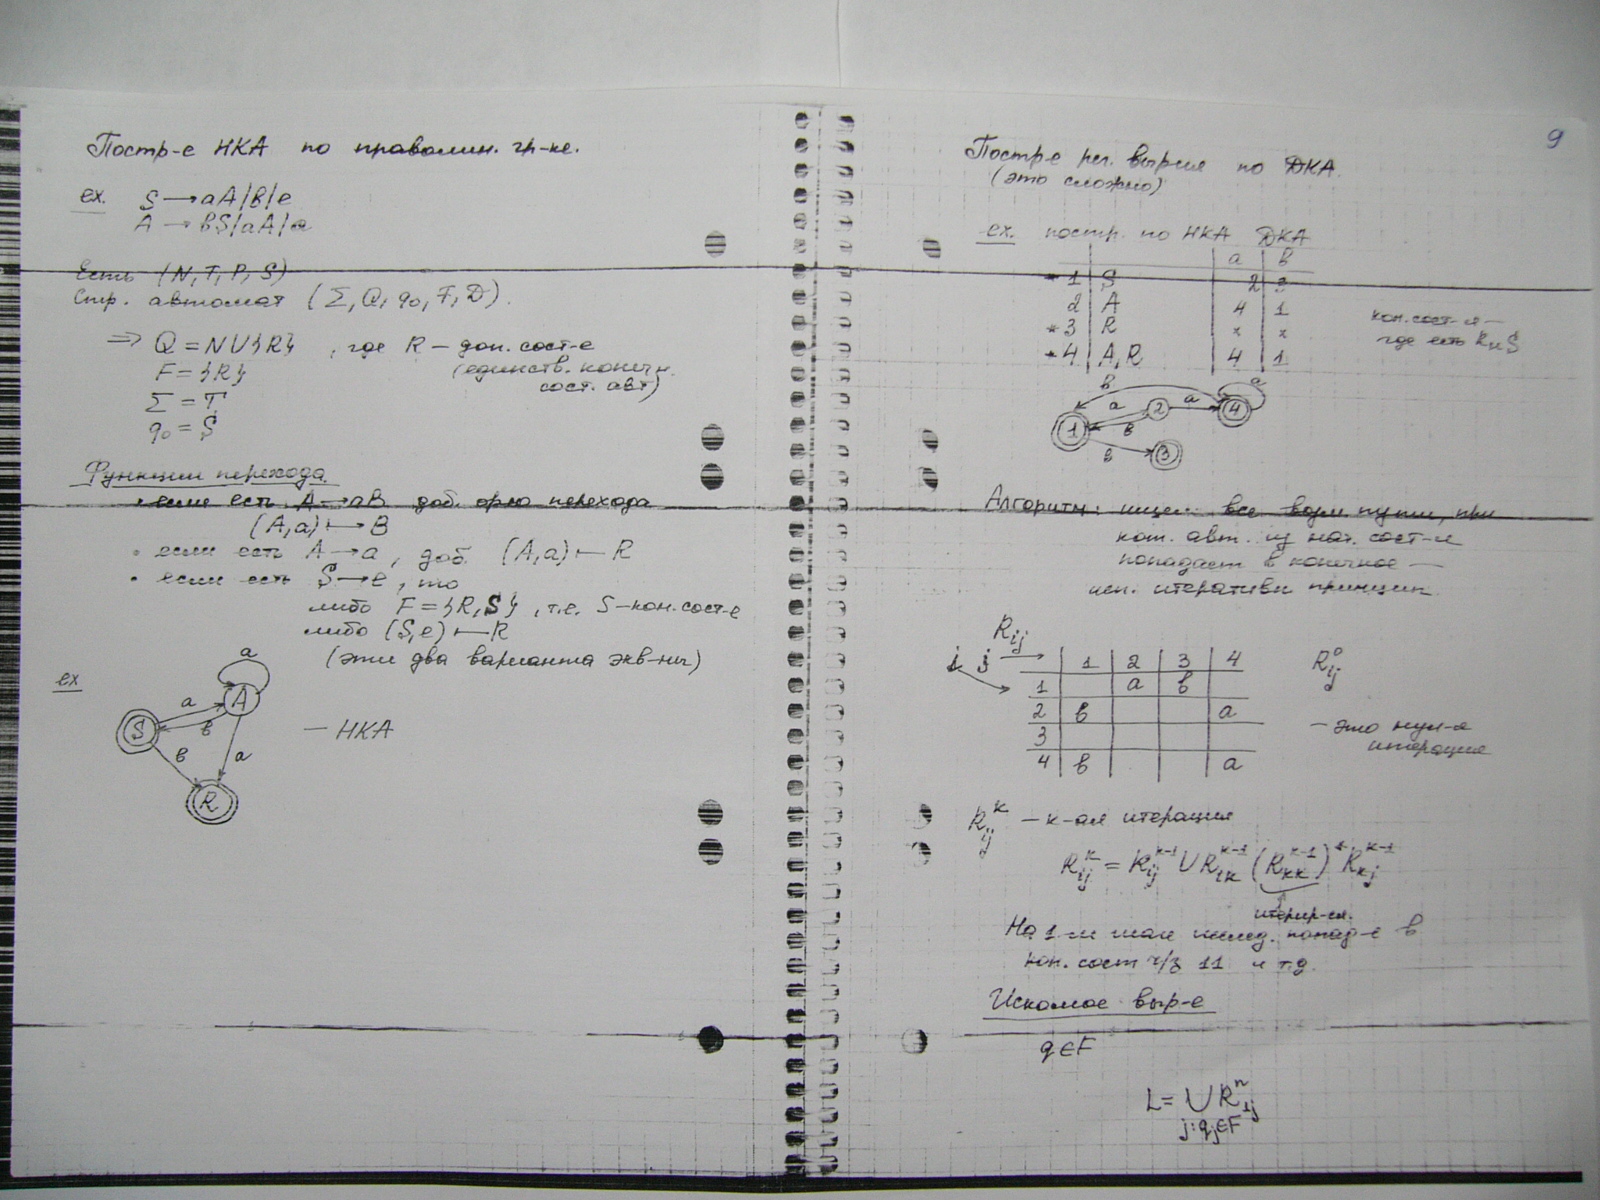 Постр-е НКА по праволин. гр-ке.
ex. S → aA|в|e
A → вS|aA|a
Есть (N, T, P, S)
Стр. автомат (Σ, Q, q₀, F, D).
⇒ Q = N∪{R}, где R – доп. сост-е
(единств. конечн.
сост. авт)
F = {R}
Σ = T
q₀ = S
Функции перехода.
• если есть A → aB доб. ф-ю перехода
(A, a) ⟼ B
• если есть A → a, доб. (A, a) ⟼ R
• если есть S → e, то
либо F = {R, S}, т.е. S – кон. сост-е
либо (S, e) ⟼ R
(эти два варианта экв-ны)
ex
a
a
A
S
в
в
a
R
— НКА
9
Постр-е рег. выр-ия по ДКА.
(это сложно)
ex. постр. по НКА ДКА
a в
* 1 S 2 3
2 A 4 1
* 3 R × ×
* 4 A,R 4 1
кон. сост-я —
где есть R и S
в a
a 2 a 4
1 в
в 3
Алгоритм: ищем все возм пути, при
кот. авт. из нач. сост-я
попадает в конечное —
исп. итеративн принцип.
R_ij
i j → 1 2 3 4
1 a в
2 в a
3
4 в a
R⁰_ij
— это нул-я
итерация
R^k_ij — k-ая итерация
R^k_ij = R^{k-1}_ij ∪ R^{k-1}_ik (R^{k-1}_kk)* R^{k-1}_kj
итерир-ся.
На 1-м шаге исслед. попад-е в
кон. сост ч/з 11 и т.д.
Искомое выр-е
q∈F
L = ∪ R^n_1j
j: q_j∈F